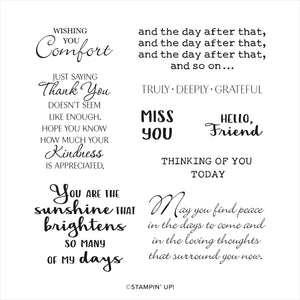 WISHING
YOU
Comfort
and the day after that,
and the day after that,
and the day after that,
and so on...
JUST SAYING
Thank You
DOESN'T SEEM
LIKE ENOUGH.
HOPE YOU KNOW
HOW MUCH YOUR
Kindness
IS APPRECIATED.
TRULY • DEEPLY • GRATEFUL
MISS
YOU
HELLO,
Friend
THINKING OF YOU
TODAY
YOU ARE THE
sunshine THAT
brightens
SO MANY
OF MY days
May you find peace
in the days to come and
in the loving thoughts
that surround you now.
©STAMPIN' UP!